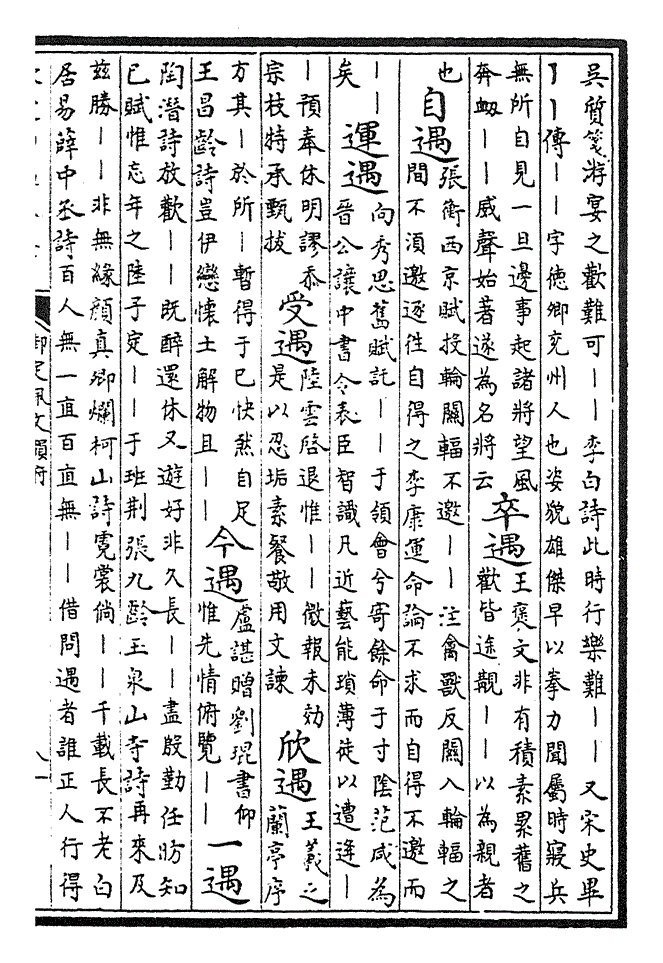 吳質箋游宴之歡難可丨丨李白詩此時行樂難丨丨又宋史畢
丨丨傳丨丨字徳卿兖州人也姿貌雄傑早以拳力聞屬時寢兵
無所自見一旦邊事起諸將望風
奔衂丨丨威聲始著遂為名將云
卒遇
王褒文非有積素累舊之
歡皆途覯丨丨以為親者
也
自遇
張衡西京賦投輪闗輻不邀丨丨注禽獸反闗入輪輻之
間不湏邀逐徃自得之李康運命論不求而自得不邀而
丨丨
矣
運遇
向秀思舊賦託丨丨于領會兮寄餘命于寸陰范咸為
晉公讓中書令表臣智識凡近藝能瑣薄徒以遭逢丨
丨預奉休明謬忝
宗枝特承甄拔
受遇
陸雲啓退惟丨丨微報未効
是以忍垢素餐敬用文諫
欣遇
王羲之
蘭亭序
方其丨於所丨暫得于已快然自足
王昌齡詩豈伊戀懷土解物且丨丨
今遇
盧諶贈劉琨書仰
惟先情俯覽丨丨
一遇
陶潛詩放歡丨丨既醉還休又遊好非久長丨丨盡殷勤任昉知
已賦惟忘年之陸子定丨丨于班荆張九齡玉泉山寺詩再來及
兹勝丨丨非無緣顔真卿爛柯山詩霓裳倘丨丨千載長不老白
居易薛中丞詩百人無一直百直無丨丨借問遇者誰正人行得
御定佩文韻府